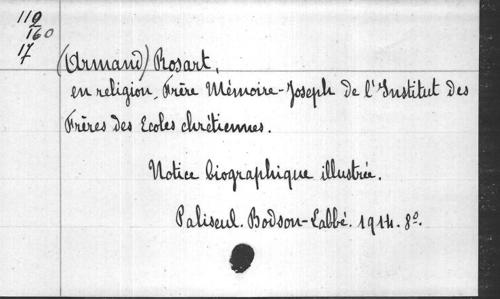 119
160
17
(Armand) Rosart,
en religion, Frère Mémoire-Joseph de l'Institut des
Frères des Ecoles chrétiennes.
Notice biographique illustrée.
Paliseul. Bodson-Labbé. 1914. 8º.